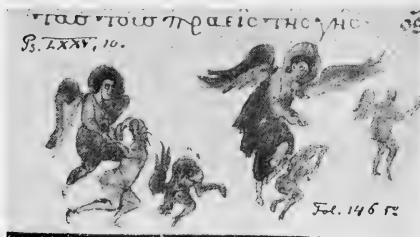 τασ τοισ πραεισ τησ γησ·
Ps. LXXV, 10.
Fol. 146 rº